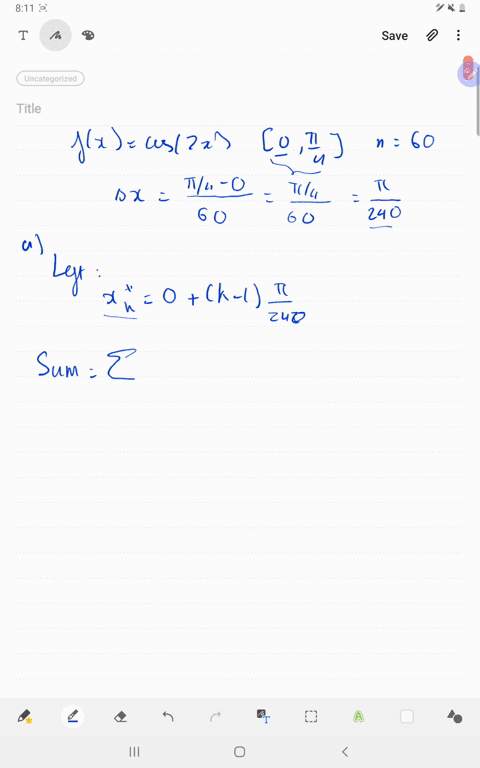 8:11
T
Save
Uncategorized
Title
f(x) = cos(2x) [0, π/4] n = 60
Δx = (π/4-0)/60 = (π/4)/60 = π/240
a)
Left:
x*k = 0 + (k-1) π/240
Sum = Σ
T
A